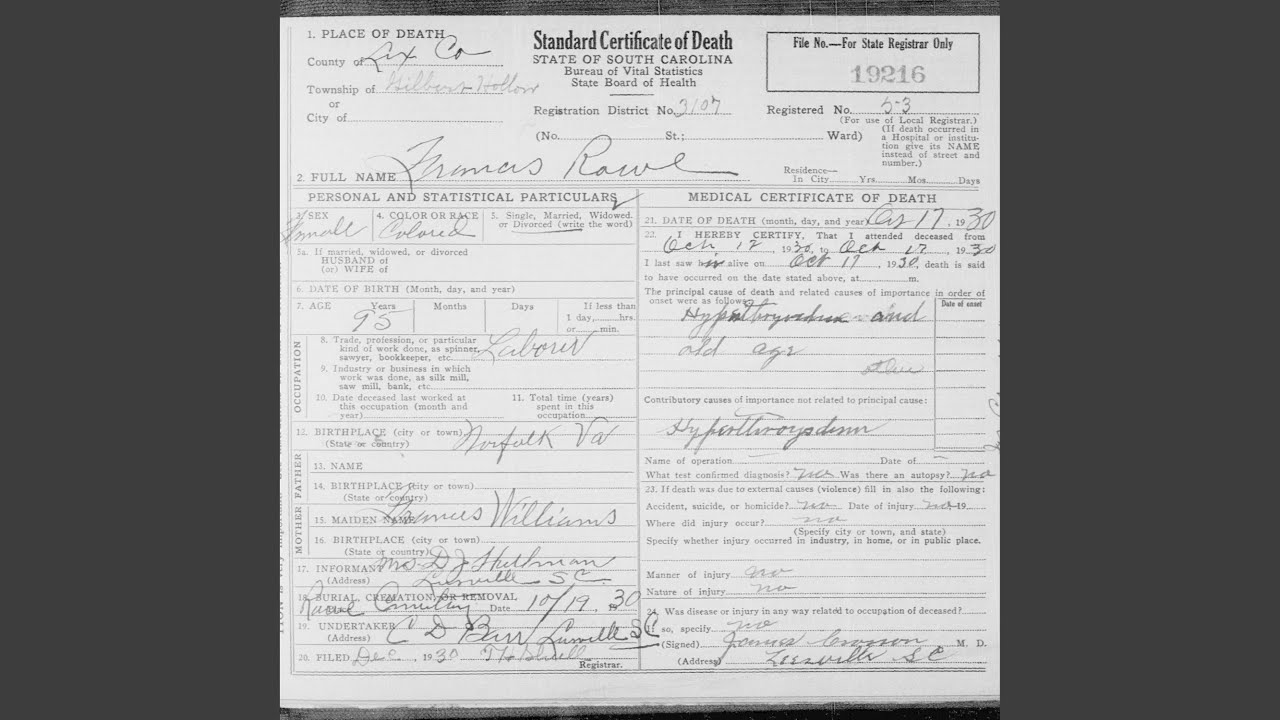 1. PLACE OF DEATH
County of Lex Co
Township of Gilbert Hollow
or
City of
Standard Certificate of Death
STATE OF SOUTH CAROLINA
Bureau of Vital Statistics
State Board of Health
File No.—For State Registrar Only
19216
Registration District No. 3107
Registered No. 53
(For use of Local Registrar.)
(No. St.; Ward)
(If death occurred in
a Hospital or institu-
tion give its NAME
instead of street and
number.)
2. FULL NAME Francis Rowe
Residence—
In City Yrs. Mos. Days
PERSONAL AND STATISTICAL PARTICULARS
3. SEX
Female
4. COLOR OR RACE
Colored
5. Single, Married, Widowed,
or Divorced (write the word)
3a. If married, widowed, or divorced
HUSBAND of
(or) WIFE of
6. DATE OF BIRTH (Month, day, and year)
7. AGE Years Months Days If less than
95
1 day, hrs.
or min.
OCCUPATION
8. Trade, profession, or particular
kind of work done, as spinner,
sawyer, bookkeeper, etc. Laborer
9. Industry or business in which
work was done, as silk mill,
saw mill, bank, etc.
10. Date deceased last worked at
this occupation (month and
year)
11. Total time (years)
spent in this
occupation
12. BIRTHPLACE (city or town) Norfolk Va
(State or country)
FATHER
13. NAME
14. BIRTHPLACE (city or town)
(State or country)
MOTHER
15. MAIDEN NAME Francis Williams
16. BIRTHPLACE (city or town)
(State or country)
17. INFORMANT Mrs D J
(Address) Leesville SC
18. BURIAL, CREMATION, OR REMOVAL
Rowe Cemetery Date 10/19 1930
19. UNDERTAKER C D Barr Leesville SC
(Address)
20. FILED Dec 1930
Registrar.
MEDICAL CERTIFICATE OF DEATH
21. DATE OF DEATH (month, day, and year) Oct 17, 1930
22. I HEREBY CERTIFY, That I attended deceased from
Oct 12, 1930, to Oct 17, 1930
I last saw h alive on Oct 17, 1930, death is said
to have occurred on the date stated above, at m.
The principal cause of death and related causes of importance in order of
onset were as follows:
Date of onset
and
old age
Contributory causes of importance not related to principal cause:
Hyperthroydism
Name of operation Date of
What test confirmed diagnosis? Was there an autopsy? no
23. If death was due to external causes (violence) fill in also the following:
Accident, suicide, or homicide? no Date of injury no 19
Where did injury occur? no
(Specify city or town, and state)
Specify whether injury occurred in industry, in home, or in public place.
Manner of injury no
Nature of injury no
24. Was disease or injury in any way related to occupation of deceased?
If so, specify no
(Signed) James Crosson M. D.
(Address) Leesville SC